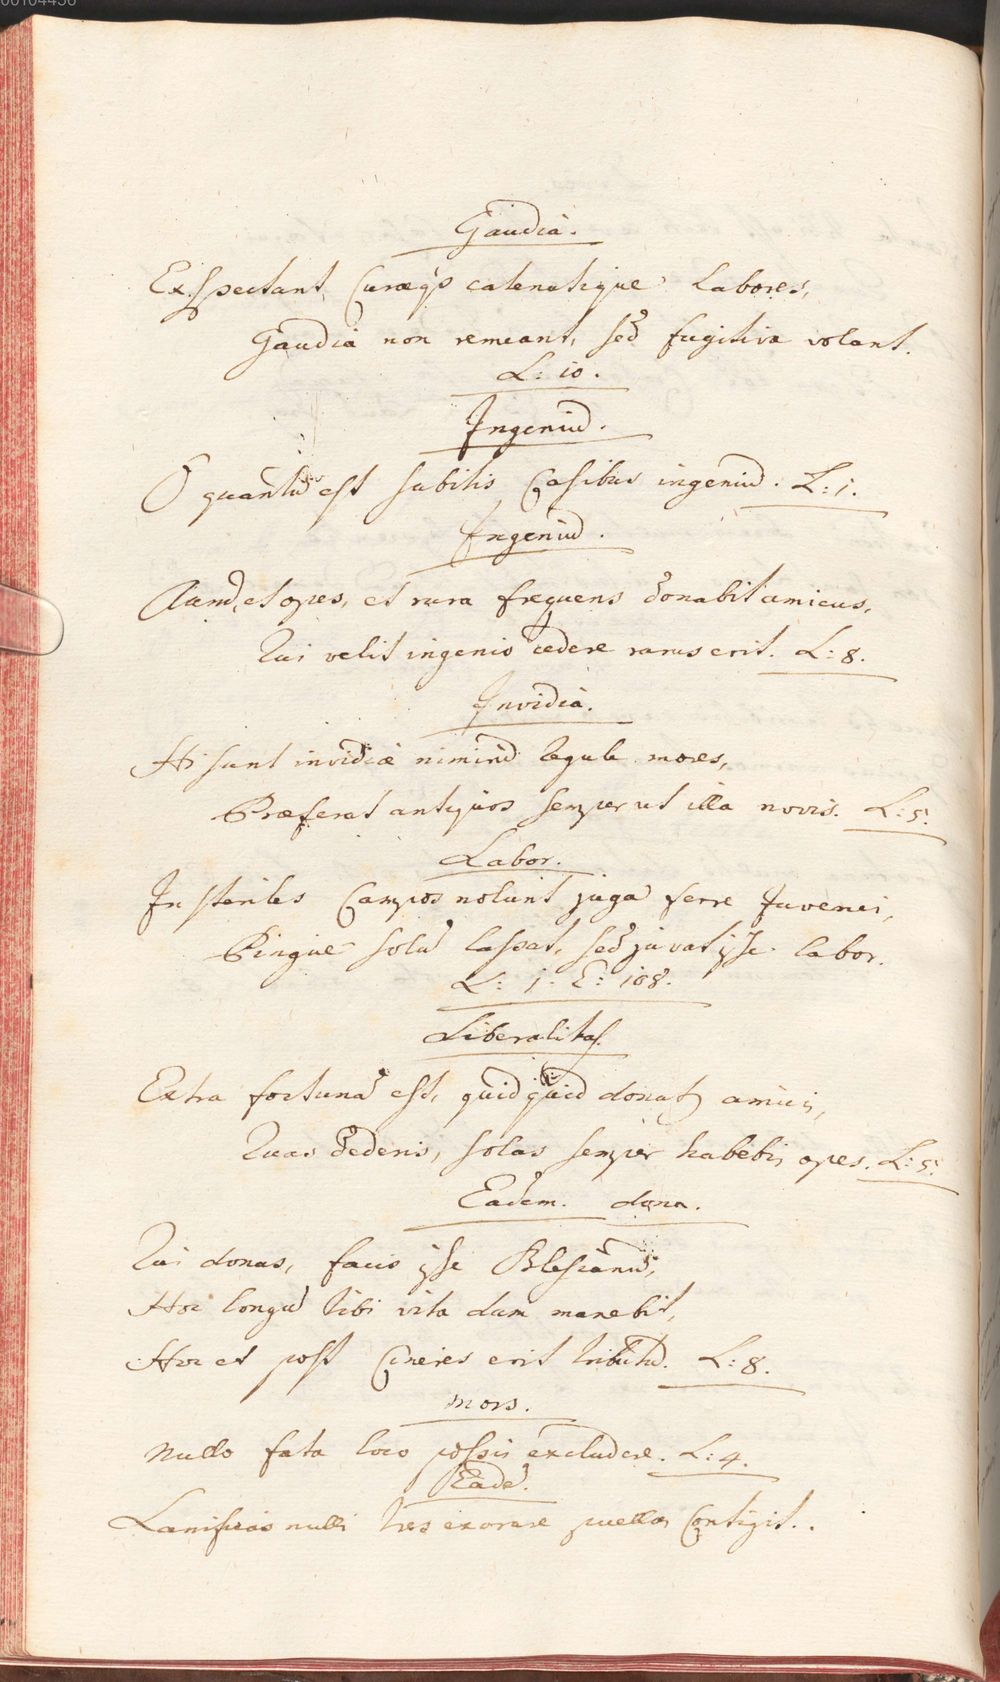 00104436
Gaudia.
Exspectant, Curæqs catenatique Labores,
Gaudia non remeant, sed fugitiva volant.
L: 10.
Ingeniū.
O quantū est subitis Casibus ingeniū. L: 1.
Ingeniū.
Aurū, et opes, et rura frequens donabit amicus,
Qui velit ingenio cedere rarus erit. L: 8.
Invidia.
Hi sunt invidiæ nimirū Regule mores,
Præferat antiquos semper ut illa novis. L: 5.
Labor.
In steriles Campos nolunt juga ferre Juvenci,
Pingue solū lassat, sed juvat ipse labor.
L: 1. E: 108.
Liberalitas.
Extra fortunā est, quidquid donat amicis,
Quas dederis, solas semper habebis opes. L: 5.
Eadem. dona.
Qui donas, facis ipse Blesianū,
Hoc longū tibi vita dum manebit,
Hoc et post Cineres erit tributū. L: 8.
mors.
Nullo fata loco possis excludere. L: 4.
Eadē.
Lanificas nulli tres exorare puellas Contigit..